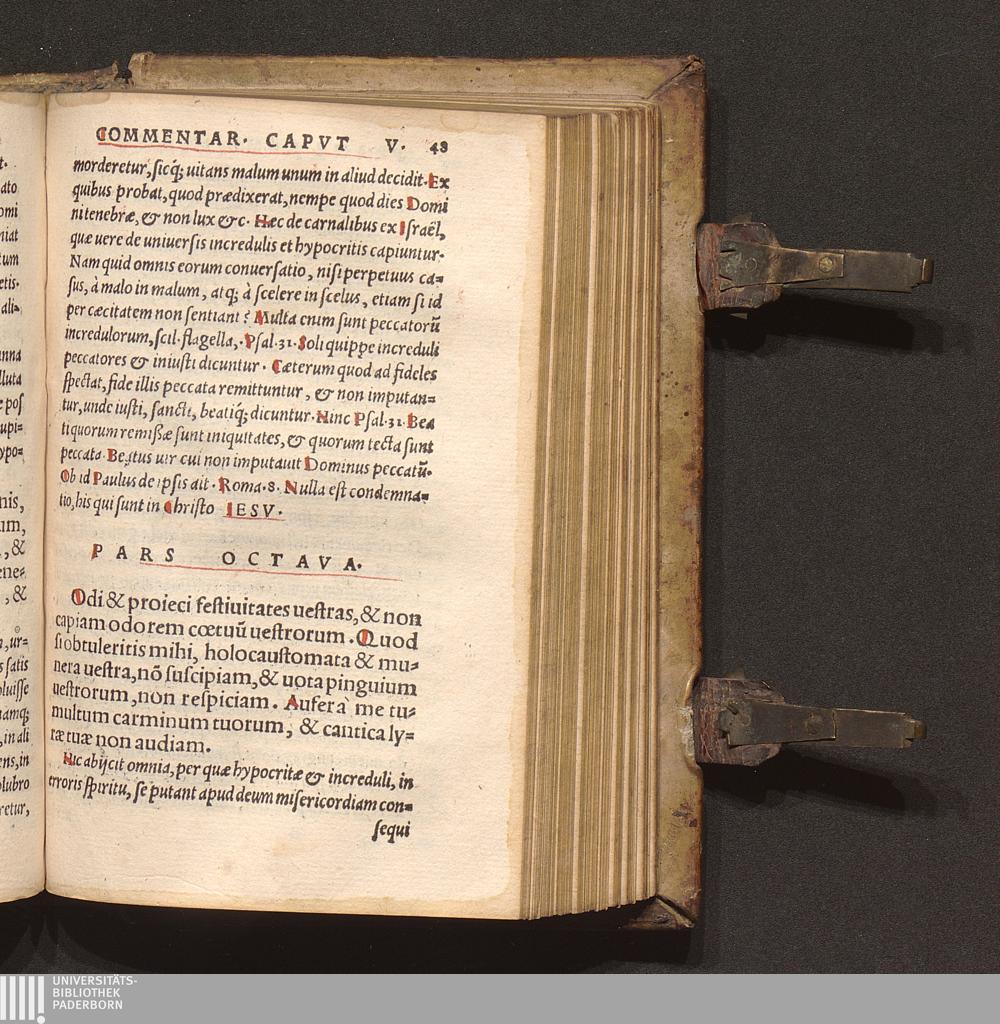 COMMENTAR. CAPVT V. 48
morderetur, sicq; uitans malum unum in aliud decidit. Ex
quibus probat, quod prædixerat, nempe quod dies Domi
ni tenebræ, & non lux &c. Hæc de carnalibus ex Israël,
quæ uere de uniuersis incredulis et hypocritis capiuntur.
Nam quid omnis eorum conuersatio, nisi perpetuus ca=
sus, à malo in malum, atq; à scelere in scelus, etiam si id
per cæcitatem non sentiant? Multa enim sunt peccatorū
incredulorum, scil. flagella, Psal. 31. Soli quippe increduli
peccatores & iniusti dicuntur. Cæterum quod ad fideles
spectat, fide illis peccata remittuntur, & non imputan=
tur, unde iusti, sancti, beatiq; dicuntur. Hinc Psal. 31. Bea
ti quorum remissæ sunt iniquitates, & quorum tecta sunt
peccata. Beatus uir cui non imputauit Dominus peccatū.
Ob id Paulus de ipsis ait. Roma. 8. Nulla est condemna=
tio, his qui sunt in Christo IESV.
PARS OCTAVA.
Odi & proieci festiuitates uestras, & non
capiam odorem cœtuū uestrorum. Quod
si obtuleritis mihi, holocaustomata & mu=
nera uestra, nō suscipiam, & uota pinguium
uestrorum, non respiciam. Aufer a me tu=
multum carminum tuorum, & cantica ly=
ræ tuæ non audiam.
Hic abijcit omnia, per quæ hypocritæ & increduli, in
erroris spiritu, se putant apud deum misericordiam con=
sequi
UNIVERSITÄTS-
BIBLIOTHEK
PADERBORN